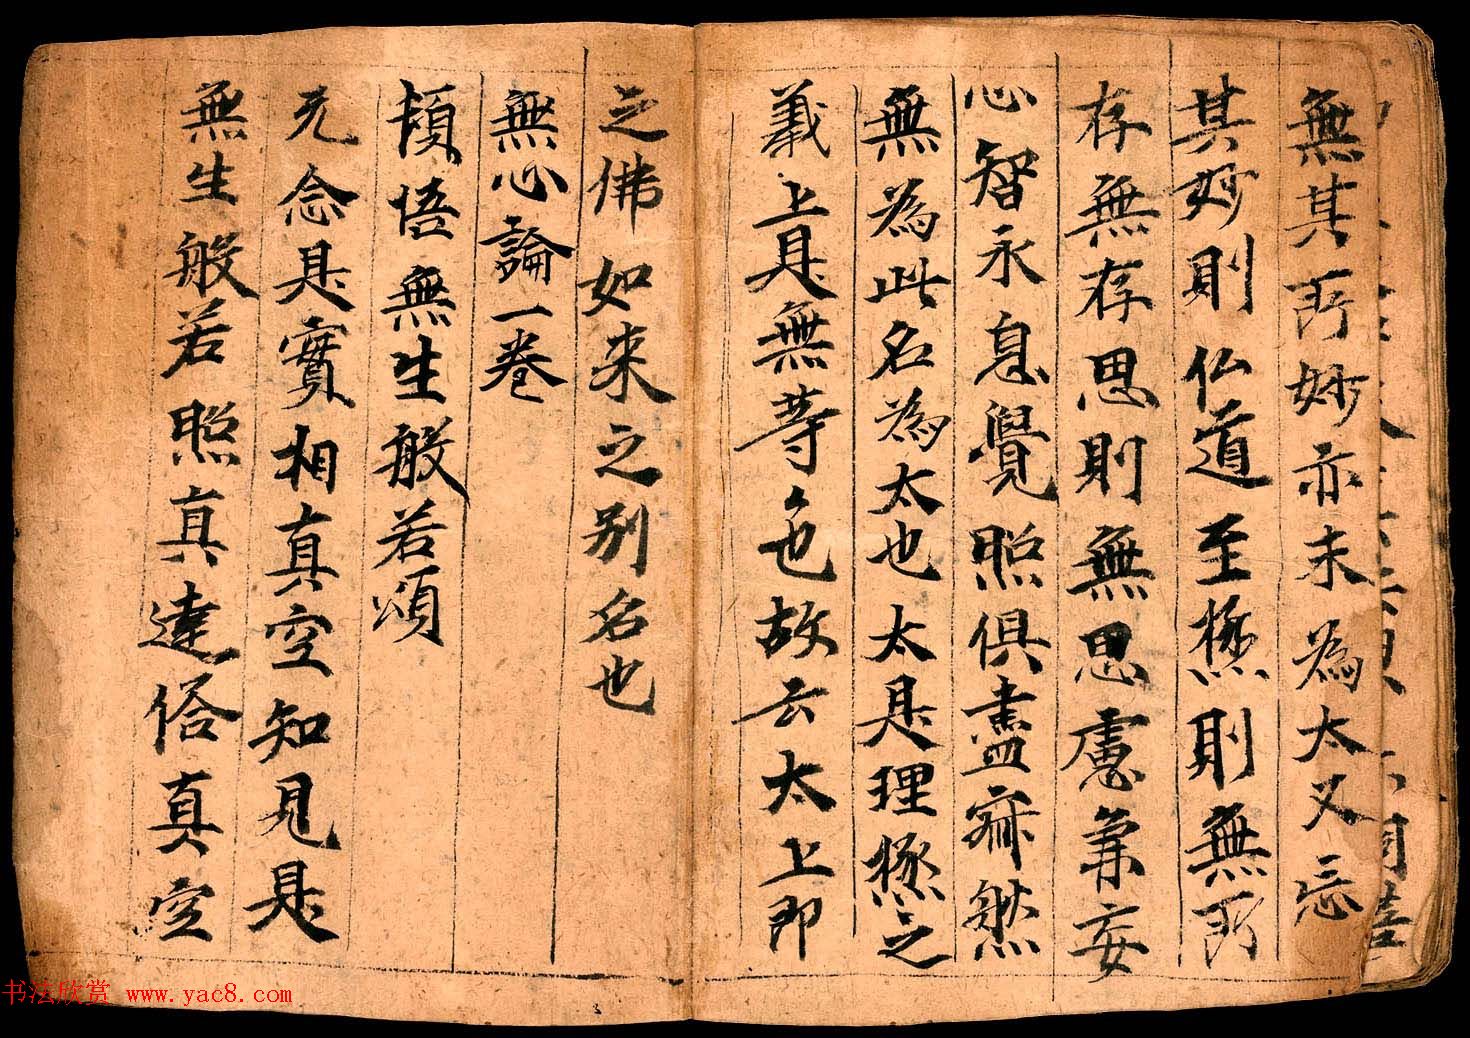 無其所妙亦未為太又忘
其妙則仏道至極則無所
存無存思則無思慮兼妄
心智永息覺照俱盡寂然
無為此名為太也太是理極之
義上是無等色故云太上即
之佛如来之别名也
無心論一卷
頓悟無生般若頌
无念是實相真空知見是
無生般若照真達俗真空
书法欣赏 www.yac8.com